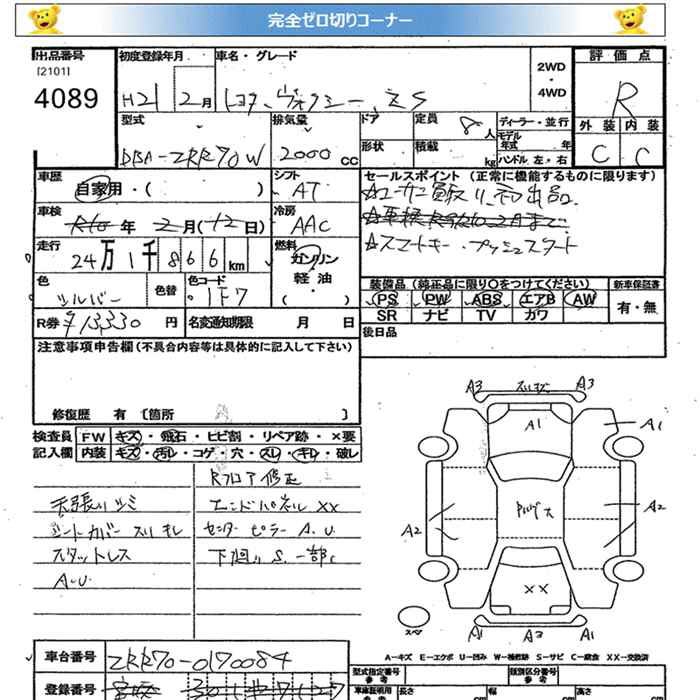 完全ゼロ切りコーナー
出品番号
[2101]
4089
初度登録年月
H21 2月
車名・グレード
トヨタ ヴォクシー ZS
2WD
・
4WD
評価点
R
外装 内装
C C
型式
DBA-ZRR70W
排気量
2000 cc
ドア
形状
定員 8人
積載 kg
ディーラー・並行
モデル年式 年
ハンドル 左・右
車歴
自家用・( )
シフト
AT
セールスポイント(正常に機能するものに限ります)
☆ユーザー買取リ 出品
☆スマートキー・プッシュスタート
車検
R10年 2月(12日)
冷房
AAC
走行
24万1千866km
燃料
ガソリン
軽油
・( )
色
シルバー
色替
色コード
1F7
装備品(純正品に限り○をつけてください)
PS PW ABS エアB AW
SR ナビ TV カワ
新車保証書
有・無
R券 ¥13,330 円
名変通知期限 月 日
後日品
注意事項申告欄(不具合内容等は具体的に記入して下さい)
修復歴 有〔箇所 〕
検査員記入欄
FW キズ・飛石・ヒビ割・リペア跡・×要
内装 キズ・汚レ・コゲ・穴・スレ・キレ・破レ
Rフロア修正
天張リシミ
エンドパネルXX
シートカバー スリキレ
センターピラーA.U.
スタットレス
下廻リS.一部C
A.U
A3 スレキズ A3
A1
A1
A2
A2
XX
スペア
A1 A3 A1
A−キズ E−エクボ U−凹み W−補修跡 S−サビ C−腐食 XX−交換済
車台番号
ZRR70-0170084
登録番号
型式指定番号
参考
類別区分番号
参考
車庫証明用
参考
長さ cm
幅 cm
高さ cm